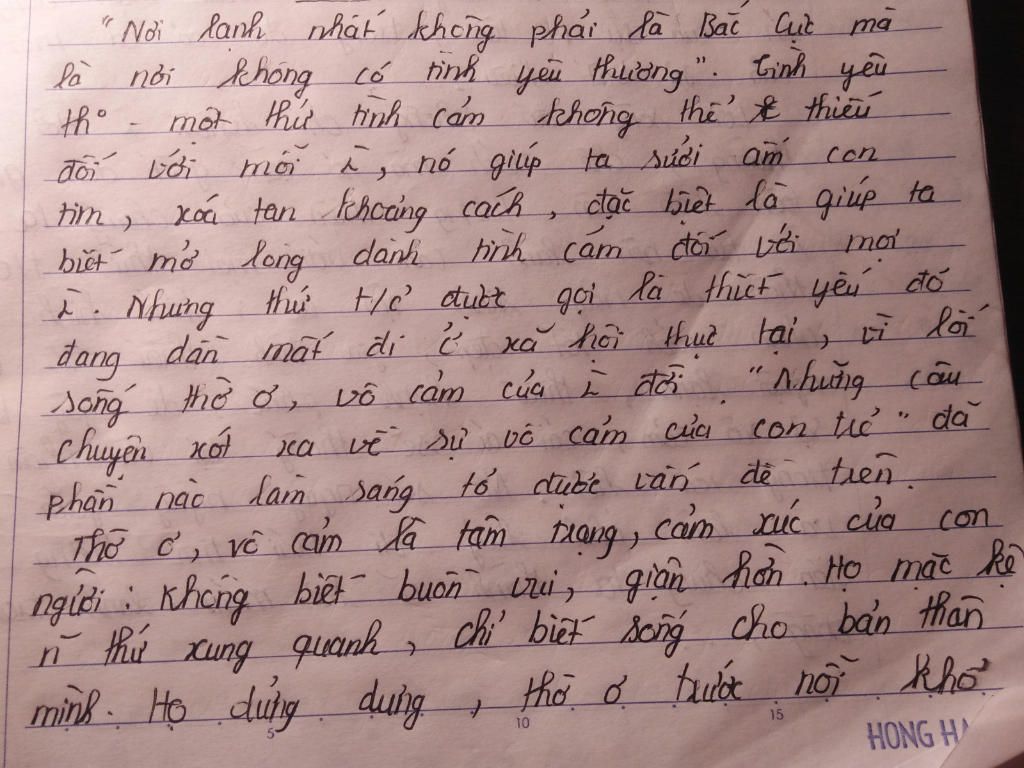 "Nơi lạnh nhất không phải là Bắc Cực mà
là nơi không có tình yêu thương". Tình yêu
th° - một thứ tình cảm không thể thiếu
đối với mỗi 2, nó giúp ta sưởi ấm con
tim, xoá tan khoảng cách, đặc biệt là giúp ta
biết mở lòng dành tình cảm đối với mọi
2. Nhưng thứ t/c' được gọi là thiết yếu đó
đang dần mất đi ở xã hội thực tại, vì lối
sống thờ ơ, vô cảm của 2 đời "Những câu
chuyện xót xa về sự vô cảm của con trẻ" đã
phần nào làm sáng tỏ được vấn đề trên.
Thờ ơ, vô cảm là tâm trạng, cảm xúc của con
người: Không biết buồn vui, giận hờn. Họ mặc kệ
n~ thứ xung quanh, chỉ biết sống cho bản thân
mình. Họ dửng dưng, thờ ơ trước nỗi khổ
5 10 15
HONG HA